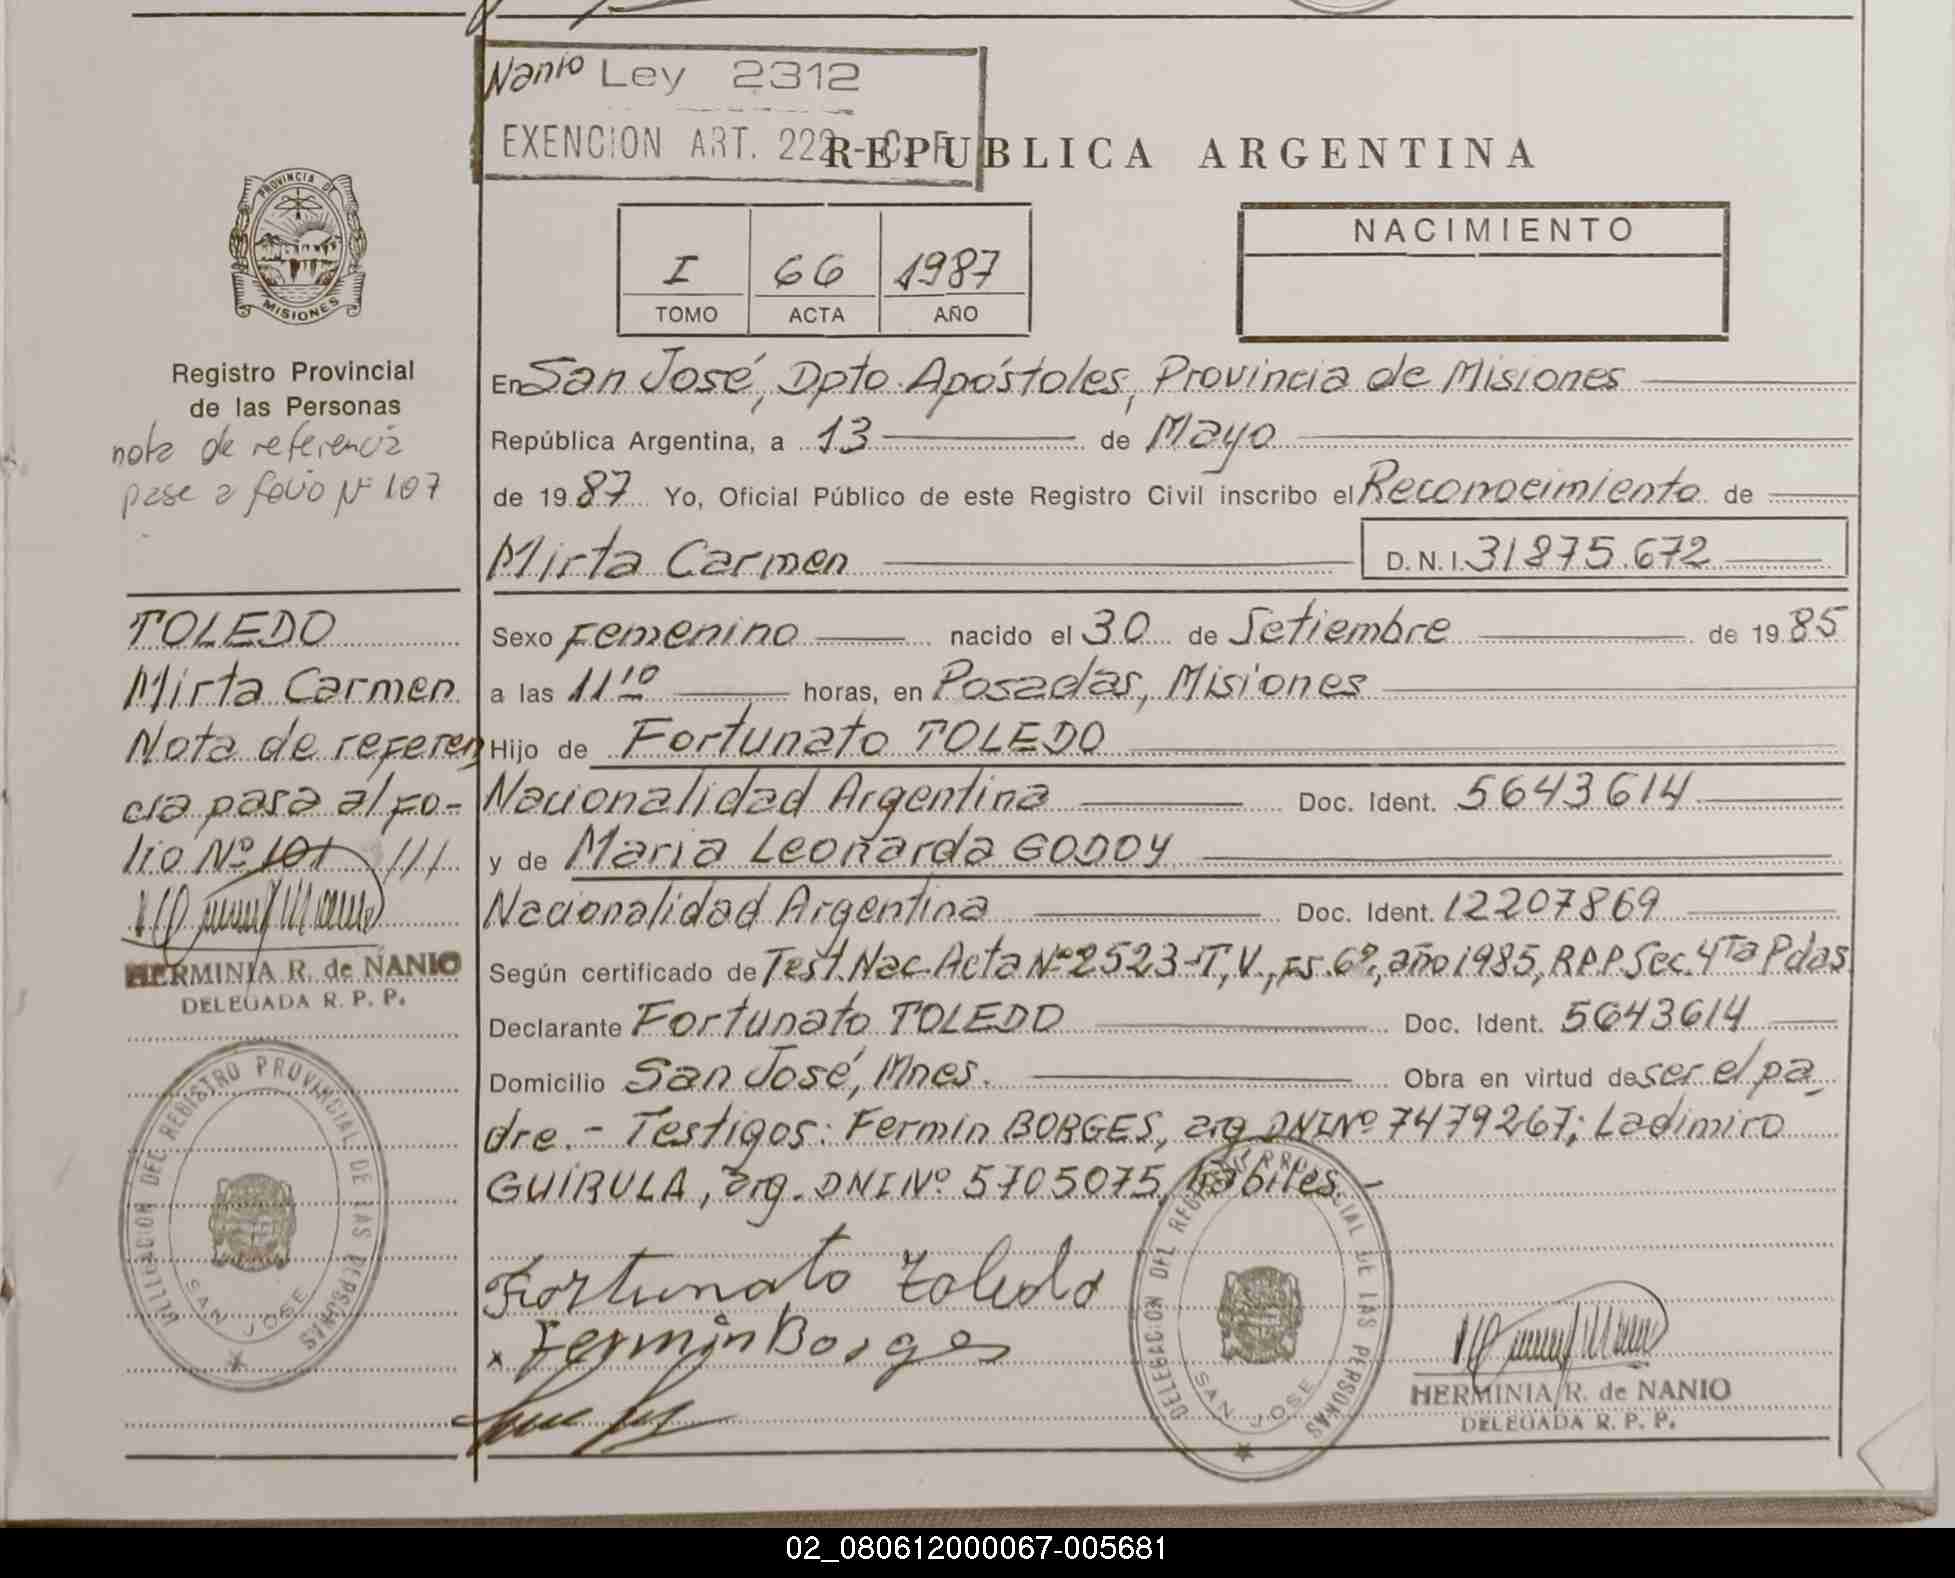 Nanio Ley 2312
EXENCION ART. 222 - C. F.
REPUBLICA ARGENTINA
PROVINCIA DE
MISIONES
NACIMIENTO
I 66 1987
TOMO ACTA AÑO
Registro Provincial
de las Personas
nota de referencia
pase a folio Nº 107
En San José, Dpto. Apóstoles, Provincia de Misiones
República Argentina, a 13 de Mayo
de 1987 Yo, Oficial Público de este Registro Civil inscribo el Reconocimiento de
Mirta Carmen D.N.I. 31875.672
TOLEDO
Mirta Carmen
Nota de referen
cia pasa al fo-
lio Nº 101 ///
HERMINIA R. de NANIO
DELEGADA R. P. P.
DELEGACION DEL REGISTRO PROVINCIAL DE LAS PERSONAS
SAN JOSE
Sexo Femenino nacido el 30 de Setiembre de 1985
a las 11 10 horas, en Posadas, Misiones
Hijo de Fortunato TOLEDO
Nacionalidad Argentina Doc. Ident. 5643614
y de Maria Leonarda GODOY
Nacionalidad Argentina Doc. Ident. 12207869
Según certificado de Test. Nac. Acta Nº 2523-T, V., Fs. 6º, año 1985, R.P.P Sec. 4Ta Pdas.
Declarante Fortunato TOLEDO Doc. Ident. 5643614
Domicilio San José, Mnes. Obra en virtud de ser el pa
dre. - Testigos: Fermin BORGES, arg. DNI Nº 7479267; Ladimiro
GUIRULA, arg. DNI Nº 5705075, hábiles. -
Fortunato Toledo
x Fermin Borges
DELEGACION DEL REGISTRO PROVINCIAL DE LAS PERSONAS
SAN JOSE
HERMINIA R. de NANIO
DELEGADA R. P. P.
02_080612000067-005681